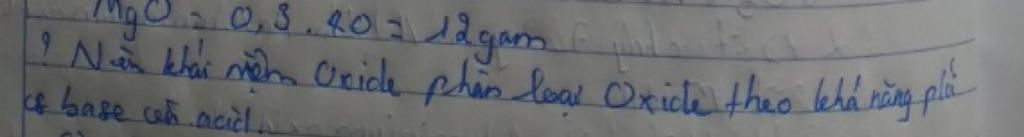 MgO = 0,3 . 40 = 12 gam
? Nêu khái niệm Oxide phân loại Oxide theo khả năng p/ứ
base acid.